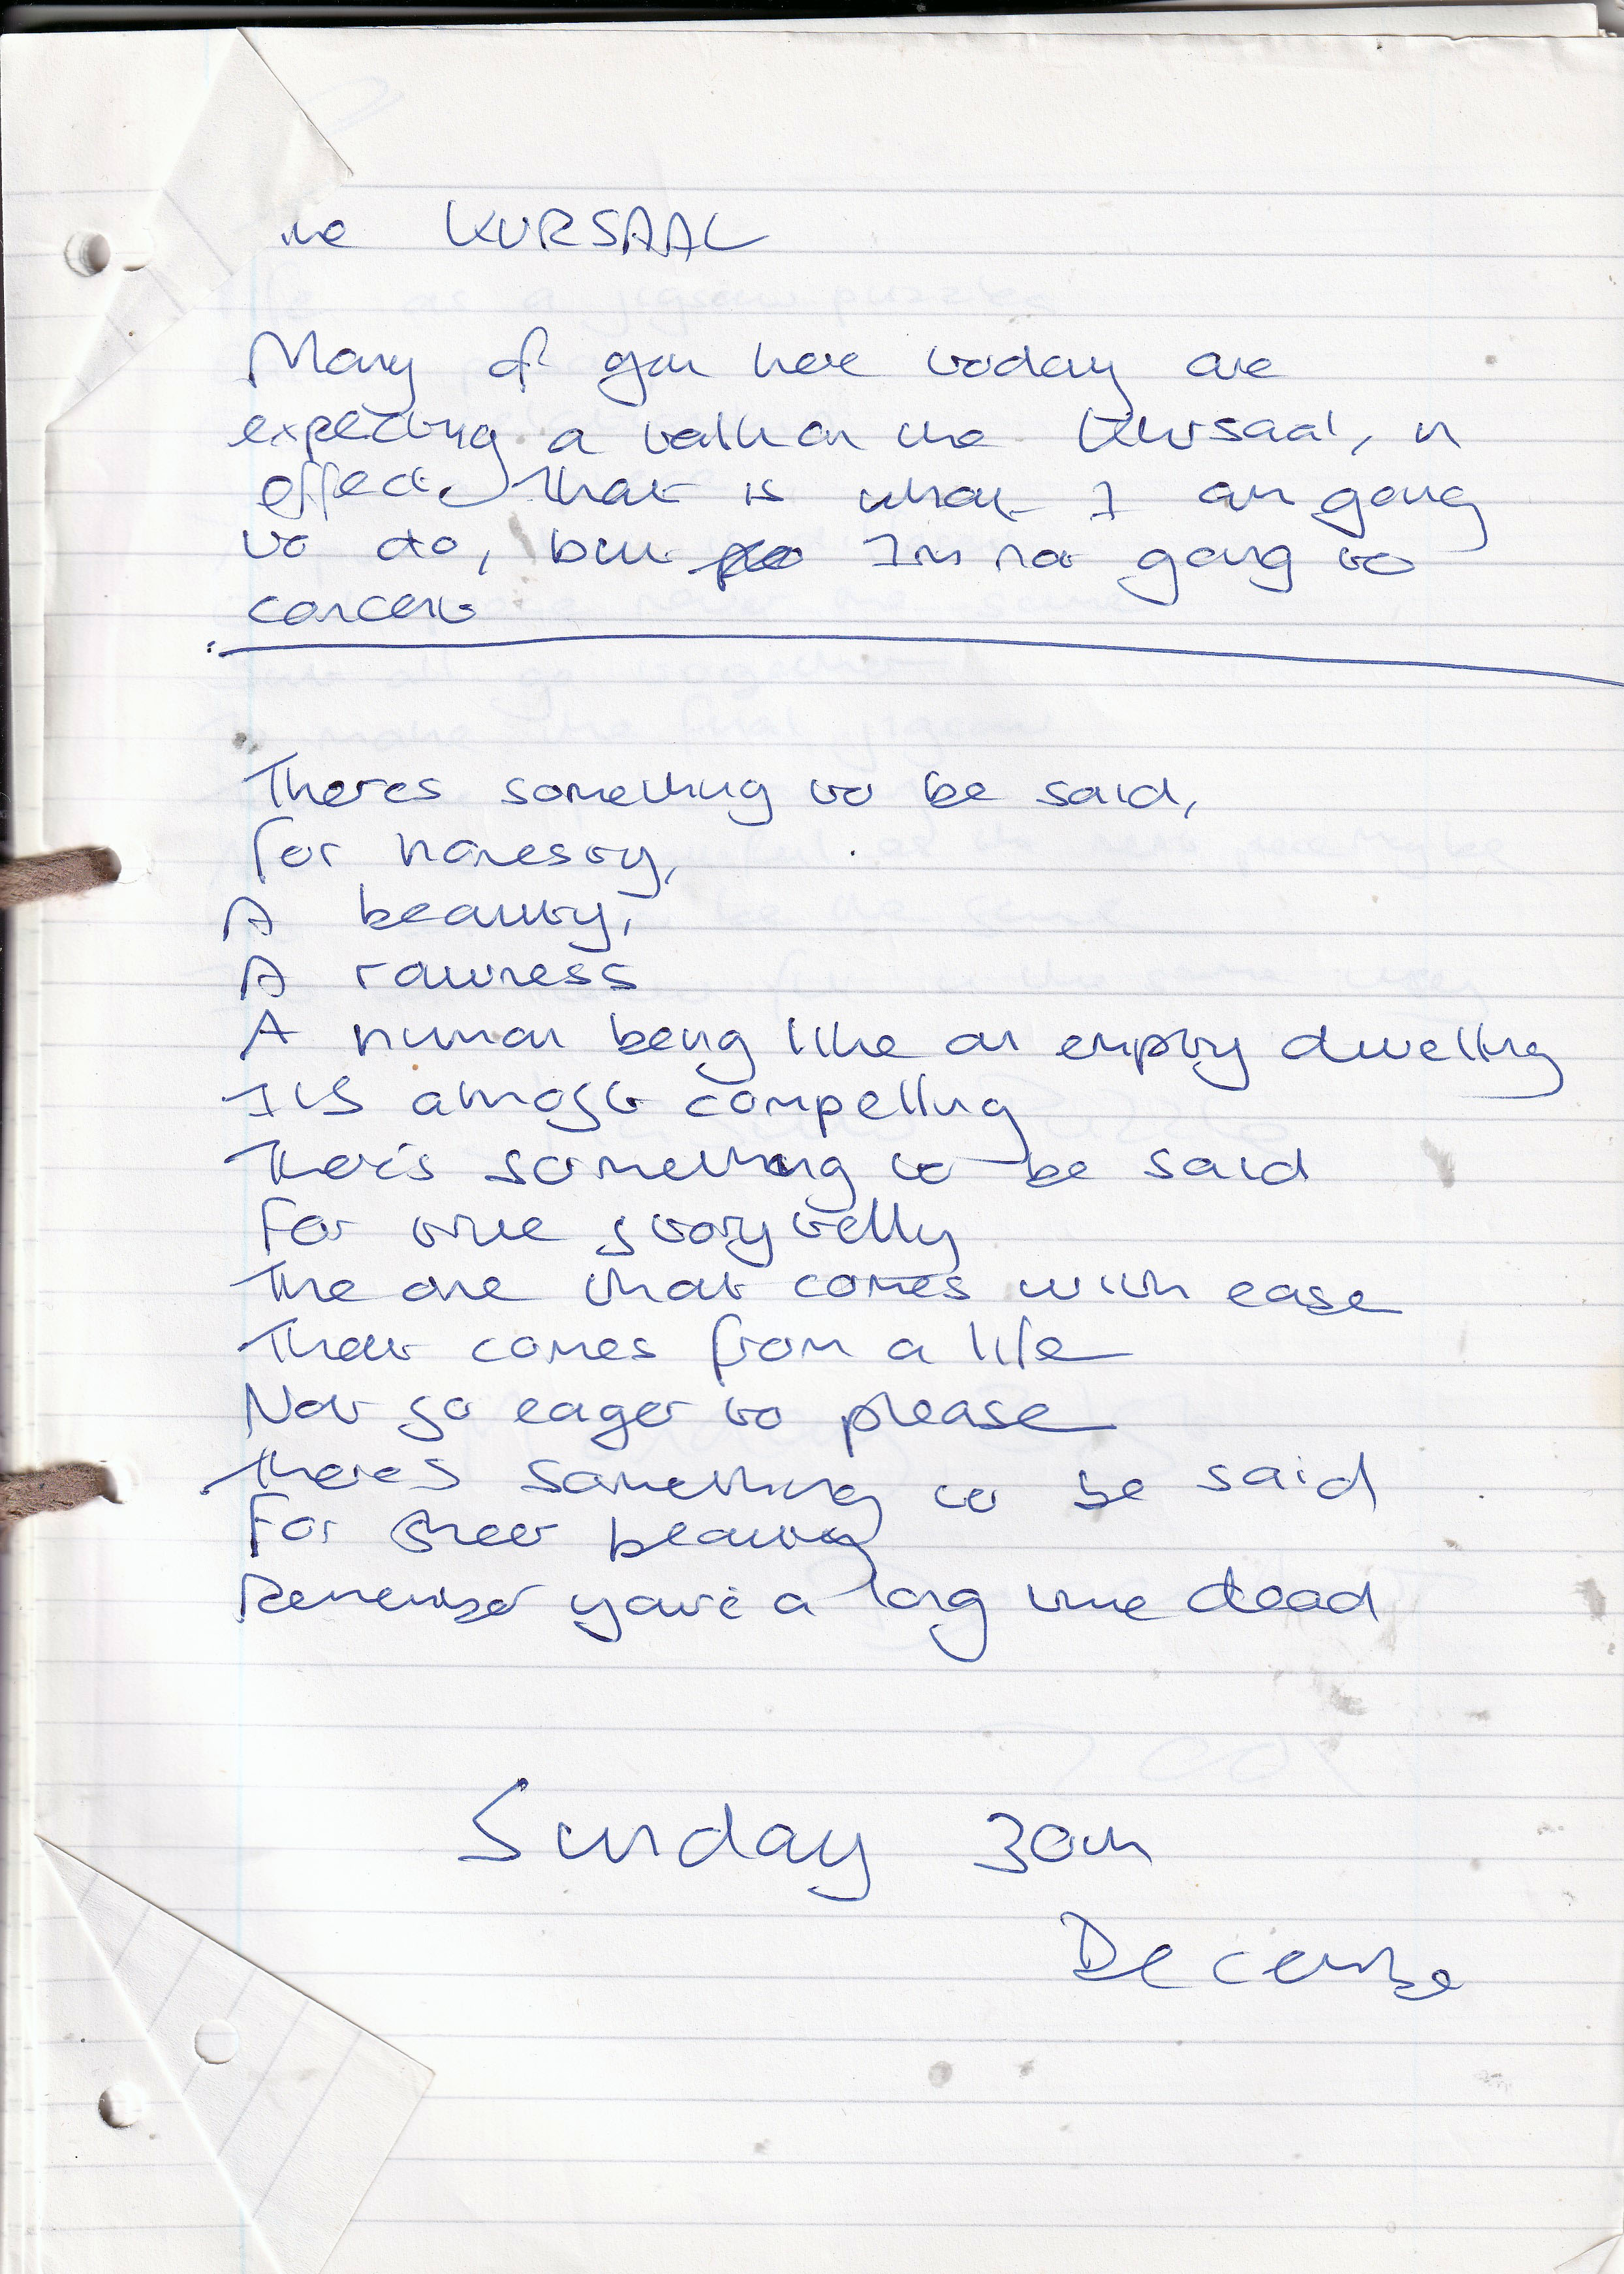 the KURSAAL
Many of you here today are
expecting a talk on the Kursaal, in
effect that is what I am going
to do, but Im not going to
concent
Theres something to be said,
for honesty,
A beauty,
A rawness
A human being like an empty dwelling
Its almost compelling
Theres something to be said
For true story telling
The one that comes with ease
That comes from a life
Not so eager to please
Theres something to be said
For sheer beauty
Remember your'e a long time dead
Sunday 30th
December